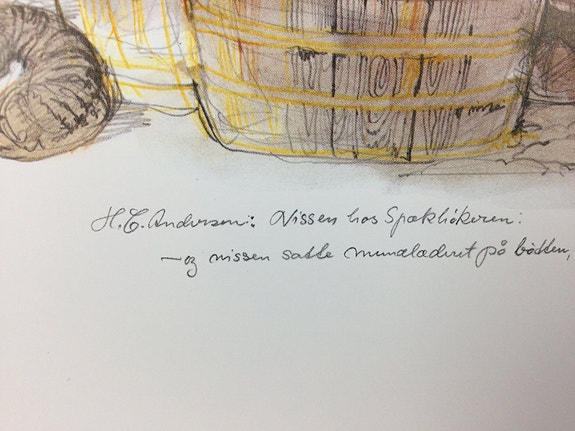 H.C. Andersen: Nissen hos Spækhökeren:
– og nissen satte mundlædret på bötten,